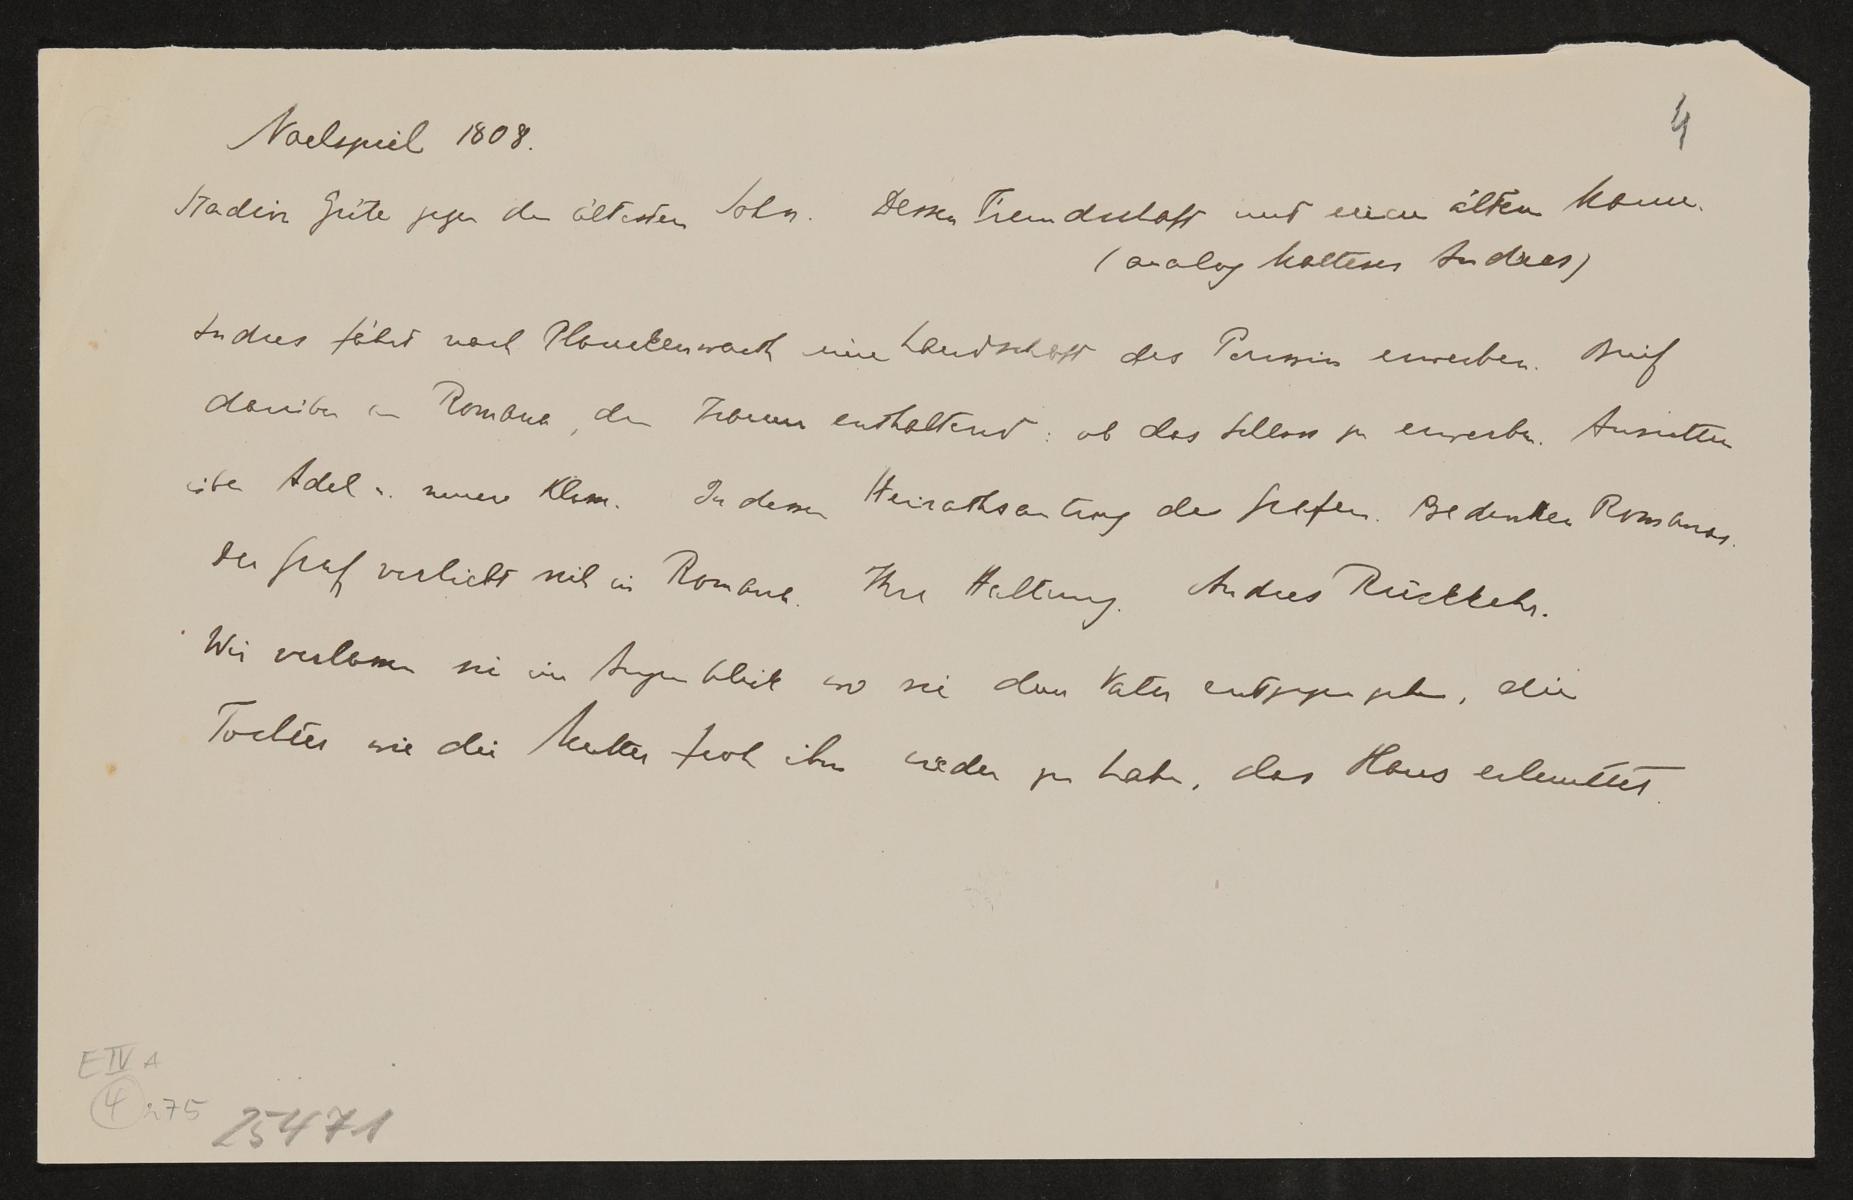 Nachspiel 1808.
4
Stadion Güte gegen den ältesten Sohn. Dessen Freundschaft mit einem ältern Mann.
(analog Malteser Andres)
Andres fährt nach Plankenwarth eine Landschaft des Poussin erwerben. Brief
darüber an Romana, den Traum enthaltend: ob das Schloss zu erwerben. Ansichten
über Adel u. neuere Classe. In dessen Heirathsantrag des Grafen. Bedenken Romanas.
Der Graf verliebt sich in Romana. Ihre Haltung. Andres Rückkehr.
Wir verlassen sie im Augenblick wo sie dem Vater entgegen gehen, die
Tochter wie die Mutter froh ihn wieder zu haben, das Haus erleuchtet.
E IV A
4 275
25471